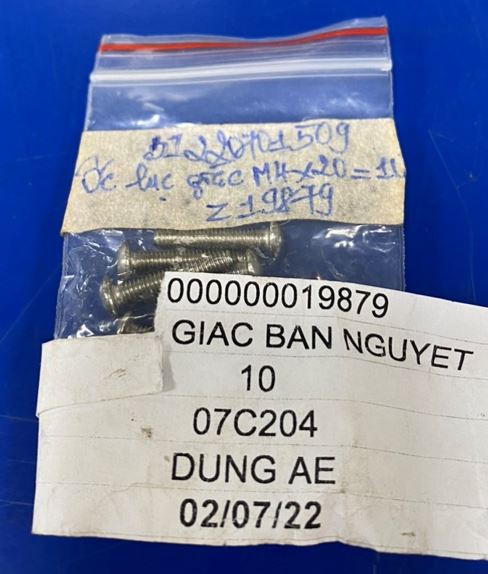 DI220701509
Ốc lục giác M4x20=11
Z19879
000000019879
GIAC BAN NGUYET
10
07C204
DUNG AE
02/07/22